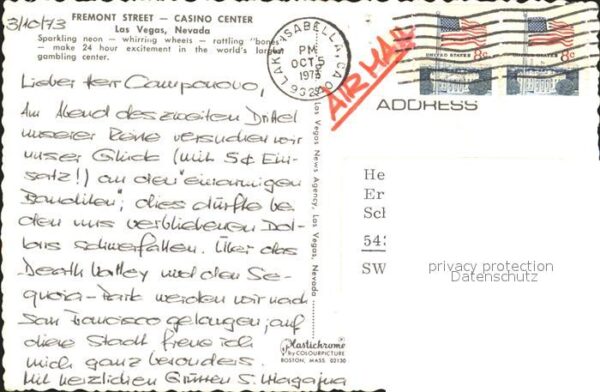 3/10/73
FREMONT STREET — CASINO CENTER
Las Vegas, Nevada
Sparkling neon — whirring wheels — rattling "bones"
— make 24 hour excitement in the world's largest
gambling center.
Lieber Herr Camponovo,
Am Abend des zweiten Drittel
unserer Reise versuchen wir
unser Glück (mit 5¢ Ein-
satz!) an den "einarmigen
Banditen"; dies dürfte bei
den uns verbliebenen Dol-
lars schwerfallen. Über das
Death Valley und den Se-
quoia-Park werden wir nach
San Francisco gelangen; auf
diese Stadt freue ich
mich ganz besonders.
Mit herzlichen Grüssen S.
LAKE ISABELLA, CA
PM
OCT 5
1973
AIR MAIL
UNITED STATES 8c
8c
ADDRESS
Las Vegas News Agency, Las Vegas, Nevada
Plastichrome
by COLOURPICTURE
BOSTON, MASS. 02130
He
Er
Sch
543
SW
privacy protection
Datenschutz